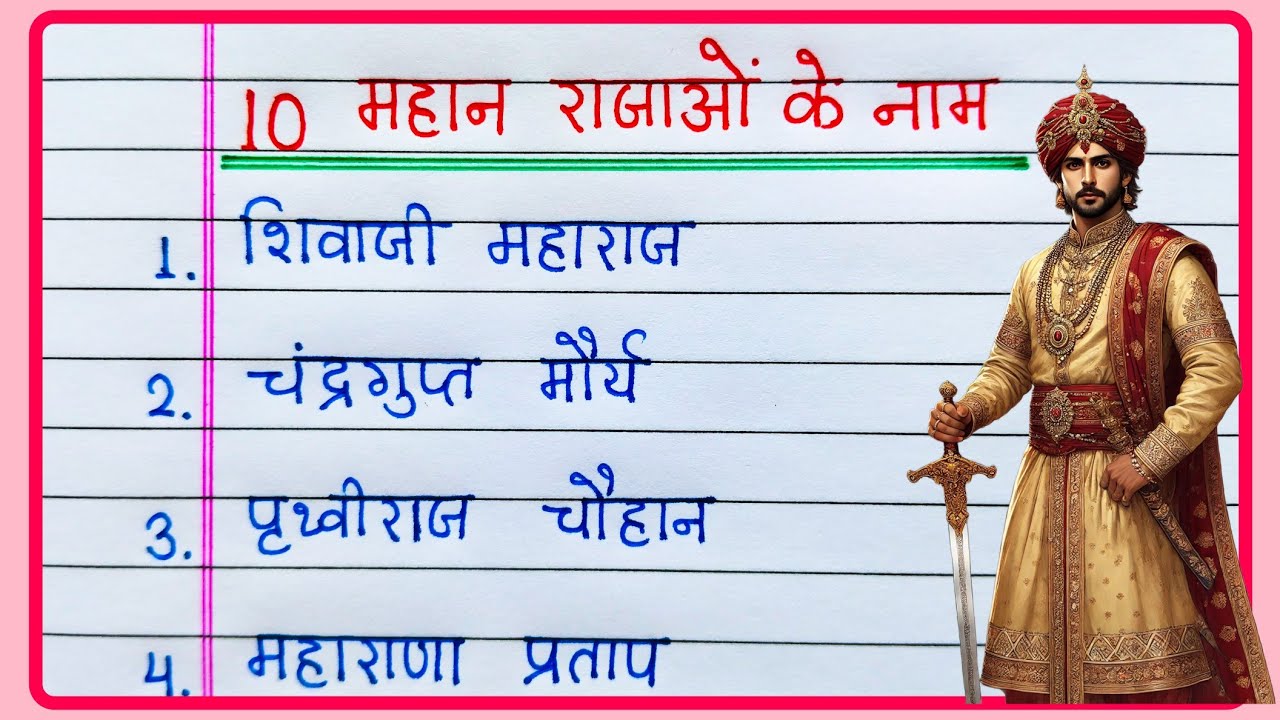 10 महान राजाओं के नाम
1. शिवाजी महाराज
2. चंद्रगुप्त मौर्य
3. पृथ्वीराज चौहान
4. महाराणा प्रताप